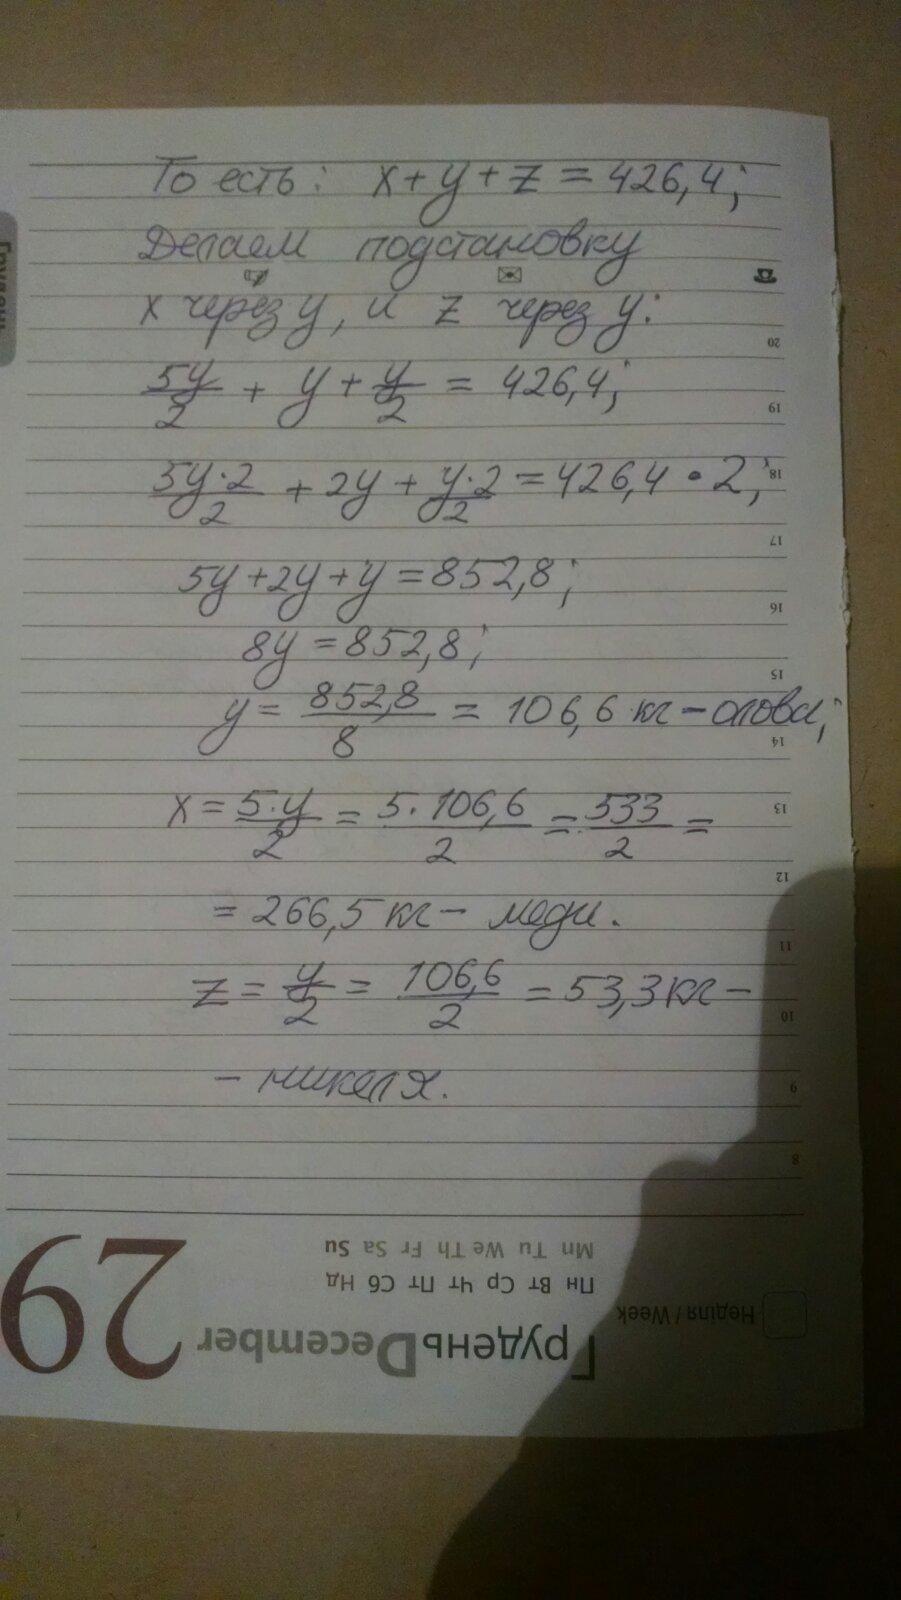 То есть: x + y + z = 426,4;
Делаем подстановку
x через y, и z через y:
5y/2 + y + y/2 = 426,4;
5y·2/2 + 2y + y·2/2 = 426,4 · 2;
5y + 2y + y = 852,8;
8y = 852,8;
y = 852,8/8 = 106,6 кг – олова;
x = 5·y/2 = 5·106,6/2 = 533/2 =
= 266,5 кг – меди.
z = y/2 = 106,6/2 = 53,3 кг –
– никеля.
20
19
18
17
16
15
14
13
12
11
10
9
8
Mn Tu We Th Fr Sa Su
Пн Вт Ср Чт Пт Сб Нд
Неділя / Week
Грудень December
29
Грудень